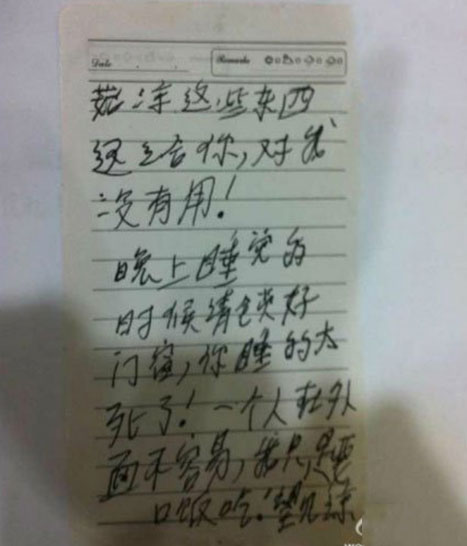 Date Remarks
菇凉这些东西
还给你,对我
没有用!
晚上睡觉的
时候请锁好
门窗,你睡的太
死了!一个人在外
面不容易,我只是要
口饭吃!望见谅